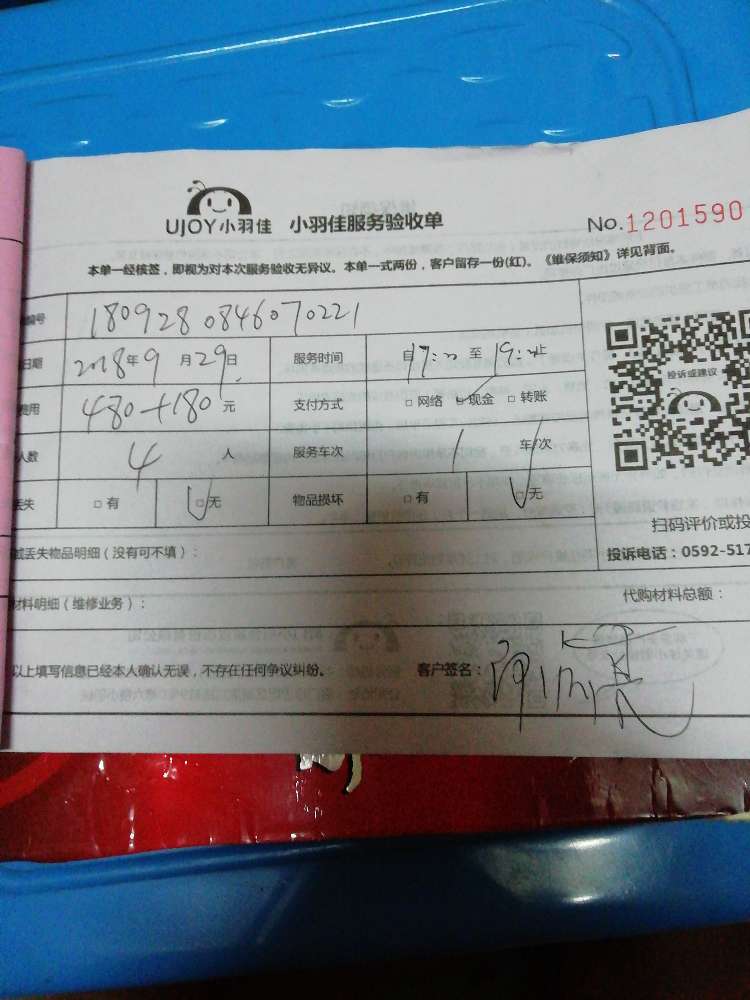 UJOY小羽佳 小羽佳服务验收单 No.1201590
本单一经核签，即视为对本次服务验收无异议。本单一式两份，客户留存一份(红)。《维保须知》详见背面。
编号 1809280846070221
日期 2018年9月29日 服务时间 自17: 至19: 止
费用 480+180元 支付方式 □网络 □现金 □转账
人数 4人 服务车次 1车/次
丢失 □有 □无 物品损坏 □有 □无
投诉或建议
扫码评价或投
或丢失物品明细（没有可不填）： 投诉电话：0592-517
材料明细（维修业务）： 代购材料总额：
以上填写信息已经本人确认无误，不存在任何争议纠纷。 客户签名：